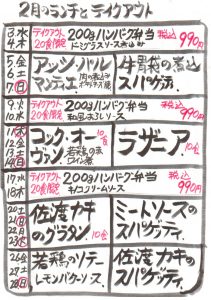 2月のランチと テイクアウト
3水 4木 テイクアウト 20食限定 200gハンバーグ弁当 税込 990円
ドミグラスソース煮込み
5金 6土 7日 アッシ・パルマンティエ 牛胃袋の煮込 スパゲティ
9火 10水 テイクアウト 20食限定 200gハンバーグ弁当 税込 990円
和風おろしソース
11木 12金 13土 14日 コック・オー・ヴァン 若鶏の赤ワイン煮 10食 ラザニア 10食
17水 18木 テイクアウト 20食限定 200gハンバーグ弁当 税込 990円
キノコクリームソース
20土 21日 22月 23火 佐渡カキのグラタン 10食 ミートソースのスパゲッティ
26金 27土 28日 若鶏のソテー レモンバターソース 佐渡カキのスパゲッティ